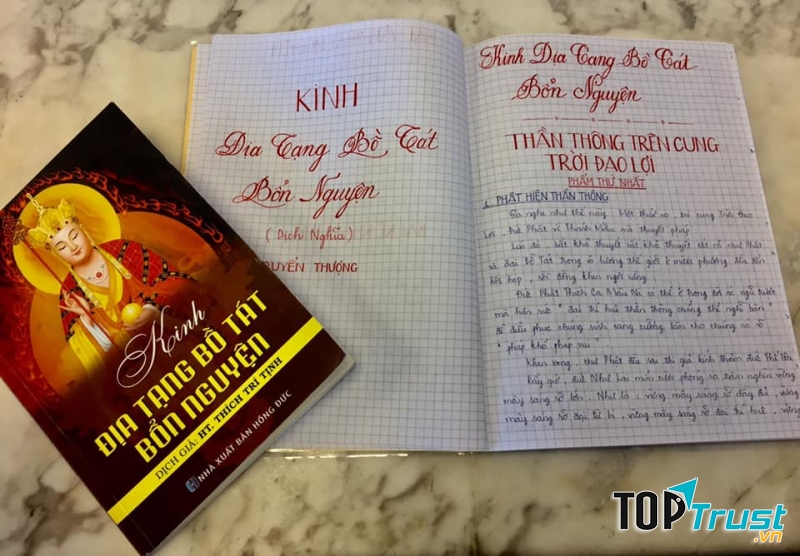 Kinh
ĐỊA TẠNG BỒ TÁT
BỔN NGUYỆN
DỊCH GIẢ: HT. THÍCH TRÍ TỊNH
NHÀ XUẤT BẢN HỒNG ĐỨC
KINH
Địa Tạng Bồ Tát
Bổn Nguyện
(Dịch Nghĩa)
QUYỂN THƯỢNG
Kinh Địa Tạng Bồ Tát
Bổn Nguyện
THẦN THÔNG TRÊN CUNG
TRỜI ĐẠO LỢI
PHẨM THỨ NHẤT
1. PHẬT HIỆN THẦN THÔNG
Ta nghe như thế này: Một thuở nọ, tại cung Trời Đao
Lợi, Đức Phật vì Thánh Mẫu mà thuyết pháp
Lúc đó, bất khả thuyết bất khả thuyết tất cả chư Phật
và đại Bồ Tát trong vô lượng thế giới ở mười phương đều đến
hội họp, rồi đồng khen ngợi rằng:
Đức Phật Thích Ca Mâu Ni có thể ở trong đời ác ngũ trược
mà hiện sức "đại trí huệ thần thông chẳng thể nghĩ bàn"
để điều phục chúng sinh cang cường làm cho chúng nó rõ
"pháp khổ pháp vui".
Khen xong, chư Phật đều sai thị giả kính thăm đức Thế Tôn.
Bấy giờ, đức Như Lai mỉm cười phóng ra trăm nghìn vừng
mây sáng rỡ lớn. Như là: vừng mây sáng rỡ đầy đủ, vừng
mây sáng rỡ đại từ bi, vừng mây sáng rỡ đại trí huệ, vừng
TOPTrust
.vn